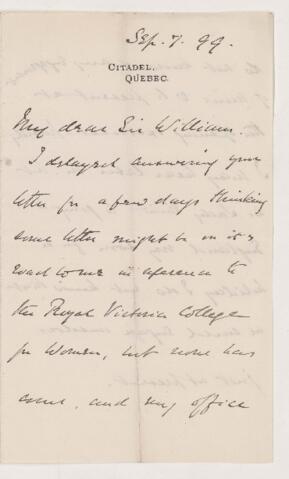 Sep. 7. 99.
CITADEL,
QUEBEC.
My dear Sir William.
I delayed answering your
letter for a few days thinking
some letter might be on its
road to me in reference to
the Royal Victoria College
for Women, but none has
come, and my office